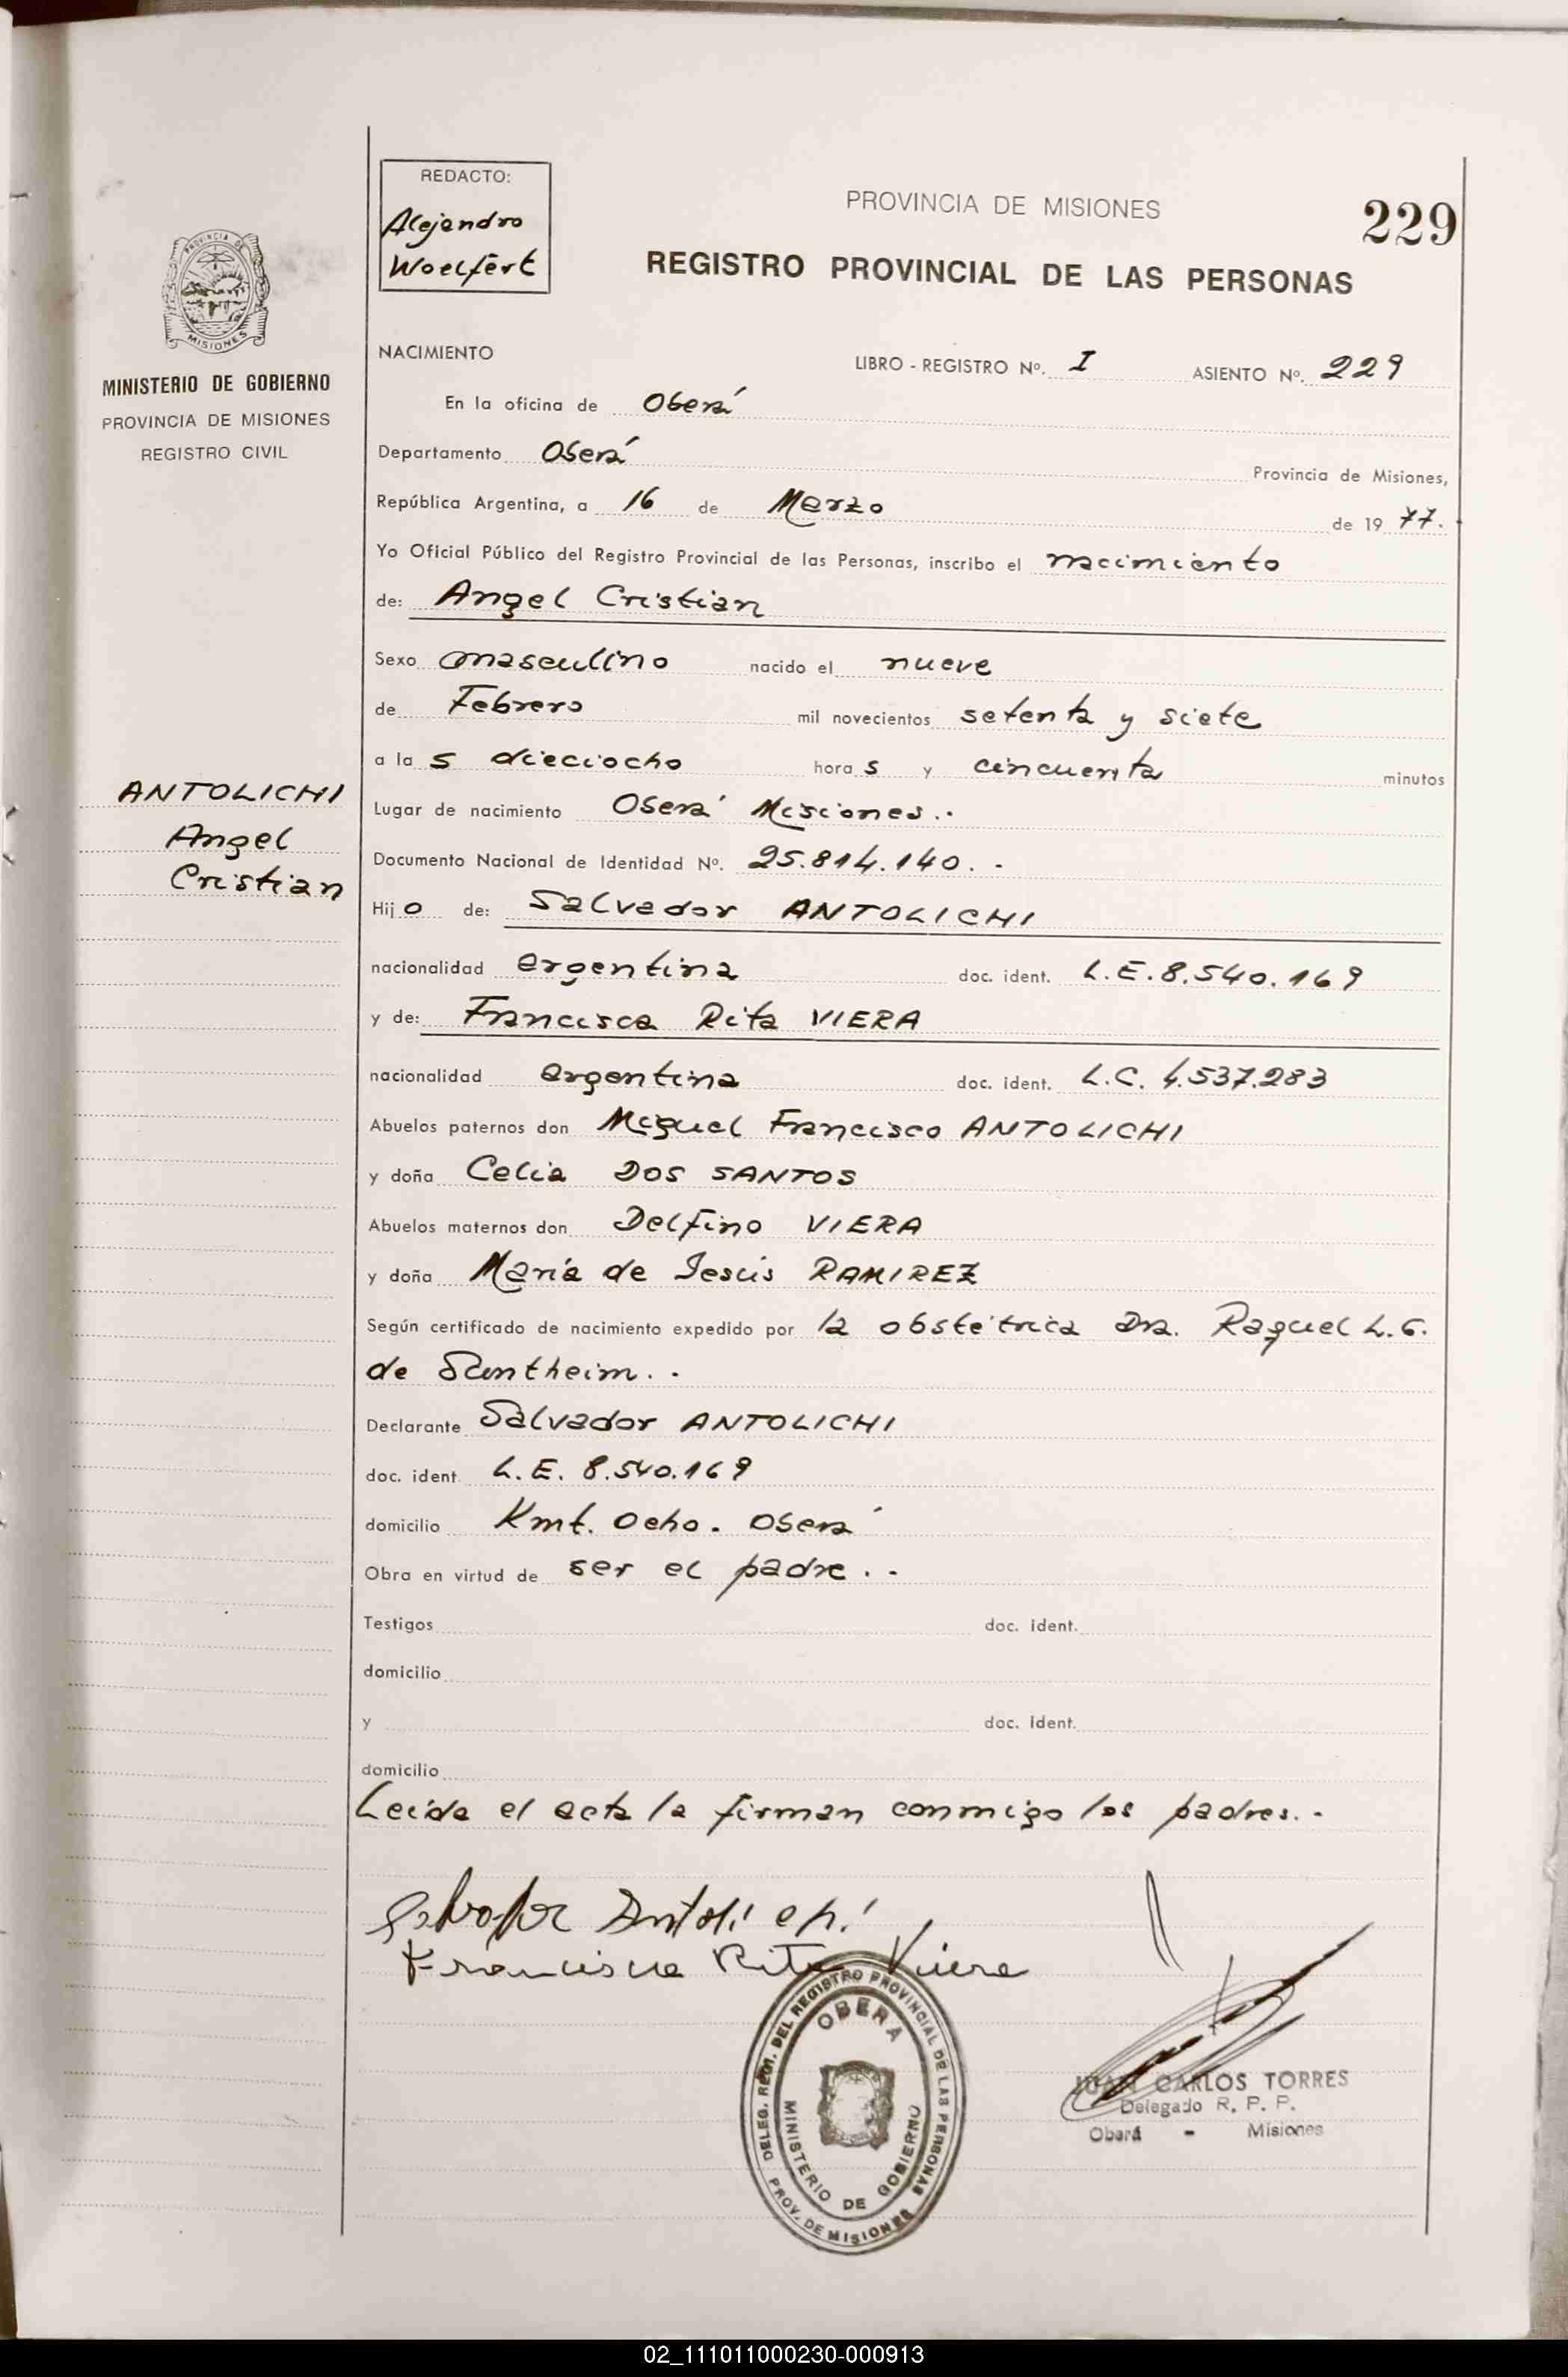 REDACTO:
Alejandro
Woelfert
PROVINCIA DE MISIONES
229
REGISTRO PROVINCIAL DE LAS PERSONAS
PROVINCIA DE
MISIONES
MINISTERIO DE GOBIERNO
PROVINCIA DE MISIONES
REGISTRO CIVIL
NACIMIENTO
LIBRO - REGISTRO Nº. I ASIENTO Nº. 229
En la oficina de Oberá
Departamento Oberá Provincia de Misiones,
República Argentina, a 16 de Marzo de 19 77.
Yo Oficial Público del Registro Provincial de las Personas, inscribo el nacimiento
de: Angel Cristian
Sexo masculino nacido el nueve
de Febrero mil novecientos setenta y siete
a la s dieciocho hora s y cincuenta minutos
ANTOLICHI
Angel
Cristian
Lugar de nacimiento Oberá Misiones.-
Documento Nacional de Identidad Nº. 25.814.140.-
Hij o de: Salvador ANTOLICHI
nacionalidad argentina doc. ident. L.E. 8.540.169
y de: Francisca Rita VIERA
nacionalidad argentina doc. ident. L.C. 4.537.283
Abuelos paternos don Miguel Francisco ANTOLICHI
y doña Celia DOS SANTOS
Abuelos maternos don Delfino VIERA
y doña María de Jesús RAMIREZ
Según certificado de nacimiento expedido por la obstétrica Dra. Raquel L. G.
de Suntheim.-
Declarante Salvador ANTOLICHI
doc. ident. L.E. 8.540.169
domicilio Kmt. Ocho. Oberá
Obra en virtud de ser el padre.-
Testigos doc. ident.
domicilio
y doc. ident.
domicilio
Leída el acta la firman conmigo los padres.-
Salvador Antolichi
Francisca Rita Viera
DELEG. REGI. DEL REGISTRO PROVINCIAL DE LAS PERSONAS
OBERA
MINISTERIO DE GOBIERNO
PROV. DE MISIONES
JUAN CARLOS TORRES
Delegado R. P. P.
Oberá - Misiones
02_111011000230-000913